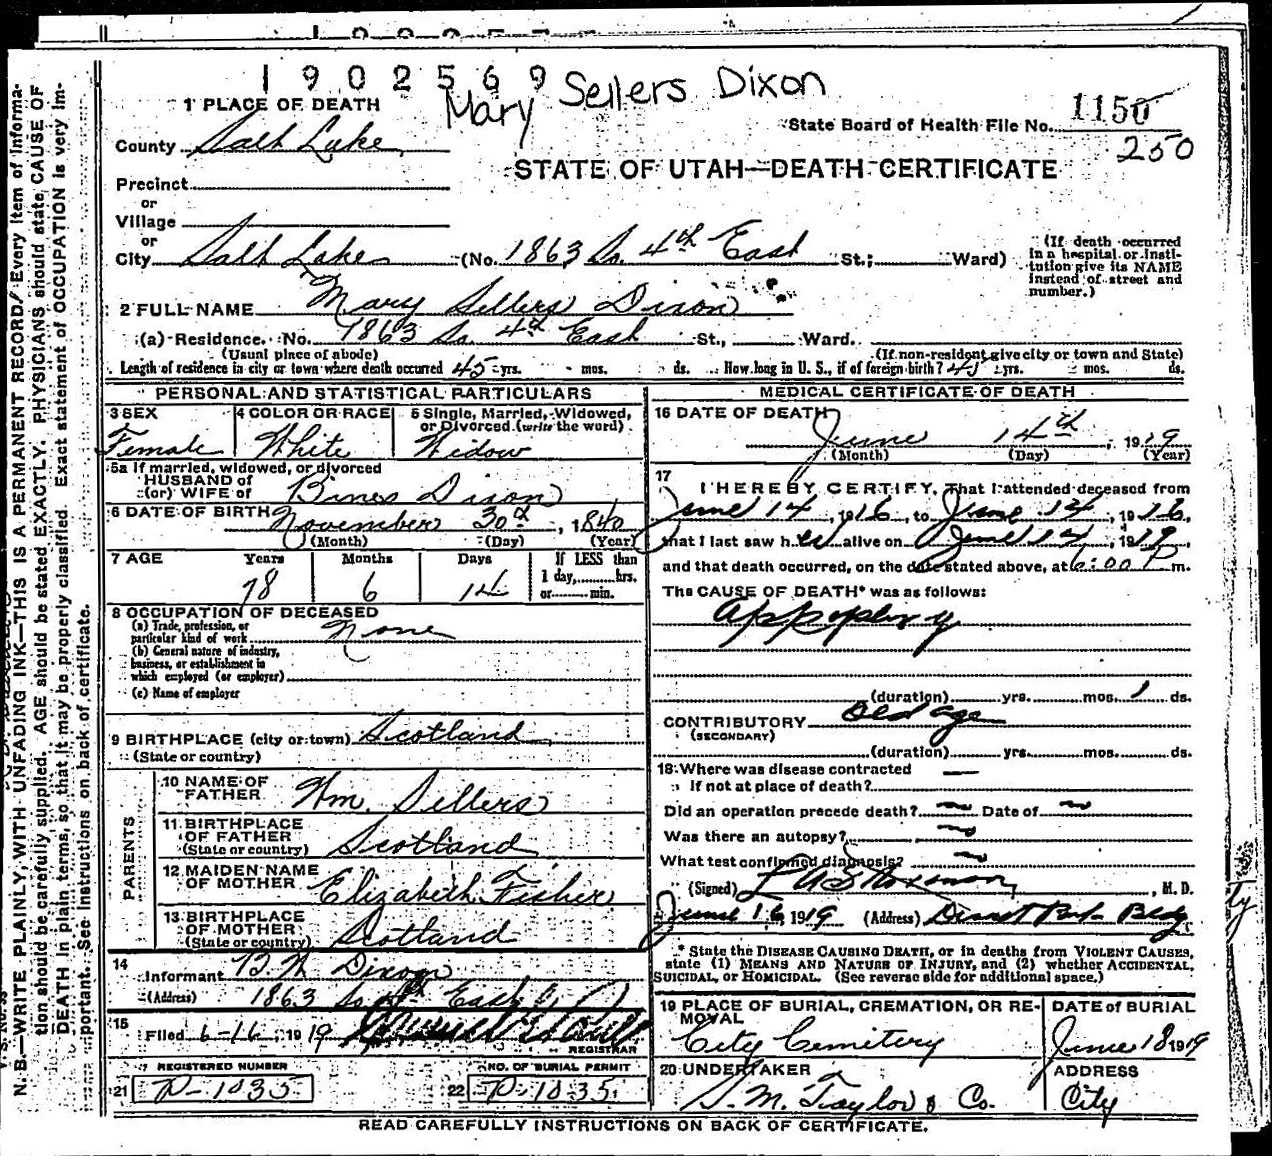 1902569
Mary Sellers Dixon
1 PLACE OF DEATH
State Board of Health File No. 1150
250
County Salt Lake
STATE OF UTAH—DEATH CERTIFICATE
Precinct
or
Village
or
City Salt Lake (No. 1863 So. 4th East St.; Ward)
(If death occurred in a hospital or institution give its NAME instead of street and number.)
2 FULL NAME Mary Sellers Dixon
(a) Residence. No. 1863 So. 4th East St., Ward.
(Usual place of abode) (If non-resident give city or town and State)
Length of residence in city or town where death occurred 45 yrs. mos. ds. How long in U. S., if of foreign birth? 45 yrs. mos. ds.
PERSONAL AND STATISTICAL PARTICULARS
3 SEX Female
4 COLOR OR RACE White
5 Single, Married, Widowed, or Divorced (write the word) Widow
5a If married, widowed, or divorced
HUSBAND of
(or) WIFE of Dixon
6 DATE OF BIRTH November 30th, 1840
(Month) (Day) (Year)
7 AGE Years Months Days If LESS than
78 6 14 1 day, hrs.
or min.
8 OCCUPATION OF DECEASED
(a) Trade, profession, or
particular kind of work None
(b) General nature of industry,
business, or establishment in
which employed (or employer)
(c) Name of employer
9 BIRTHPLACE (city or town) Scotland
(State or country)
PARENTS
10 NAME OF FATHER Wm. Sellers
11 BIRTHPLACE OF FATHER (State or country) Scotland
12 MAIDEN NAME OF MOTHER Elizabeth Fisher
13 BIRTHPLACE OF MOTHER (State or country) Scotland
14 Informant Dixon
(Address) 1863 So 4th East
15 Filed 6-16, 1919
REGISTRAR
REGISTERED NUMBER
21 P-1035
NO. OF BURIAL PERMIT
22 P-1035
MEDICAL CERTIFICATE OF DEATH
16 DATE OF DEATH
June 14th, 1919
(Month) (Day) (Year)
17 I HEREBY CERTIFY, That I attended deceased from
June 14, 1916, to June 14, 1916,
that I last saw her alive on June 14, 1919,
and that death occurred, on the date stated above, at 6:00 P m.
The CAUSE OF DEATH* was as follows:
Appoplexy
(duration) yrs. mos. 1 ds.
CONTRIBUTORY Old age
(SECONDARY)
(duration) yrs. mos. ds.
18 Where was disease contracted —
If not at place of death?
Did an operation precede death? — Date of —
Was there an autopsy? —
What test confirmed diagnosis? —
(Signed), M. D.
June 16, 1919 (Address) Bldg
* State the DISEASE CAUSING DEATH, or in deaths from VIOLENT CAUSES,
state (1) MEANS AND NATURE OF INJURY, and (2) whether ACCIDENTAL,
SUICIDAL, or HOMICIDAL. (See reverse side for additional space.)
19 PLACE OF BURIAL, CREMATION, OR REMOVAL City Cemitery
DATE of BURIAL June 18 1919
20 UNDERTAKER S. M. Taylor & Co.
ADDRESS City
READ CAREFULLY INSTRUCTIONS ON BACK OF CERTIFICATE.
N. B.—WRITE PLAINLY, WITH UNFADING INK—THIS IS A PERMANENT RECORD. Every item of informa-
tion should be carefully supplied. AGE should be stated EXACTLY. PHYSICIANS should state CAUSE OF
DEATH in plain terms, so that it may be properly classified. Exact statement of OCCUPATION is very im-
portant. See instructions on back of certificate.